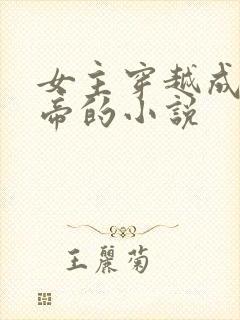 女主穿越成
帝的小说
王丽菊